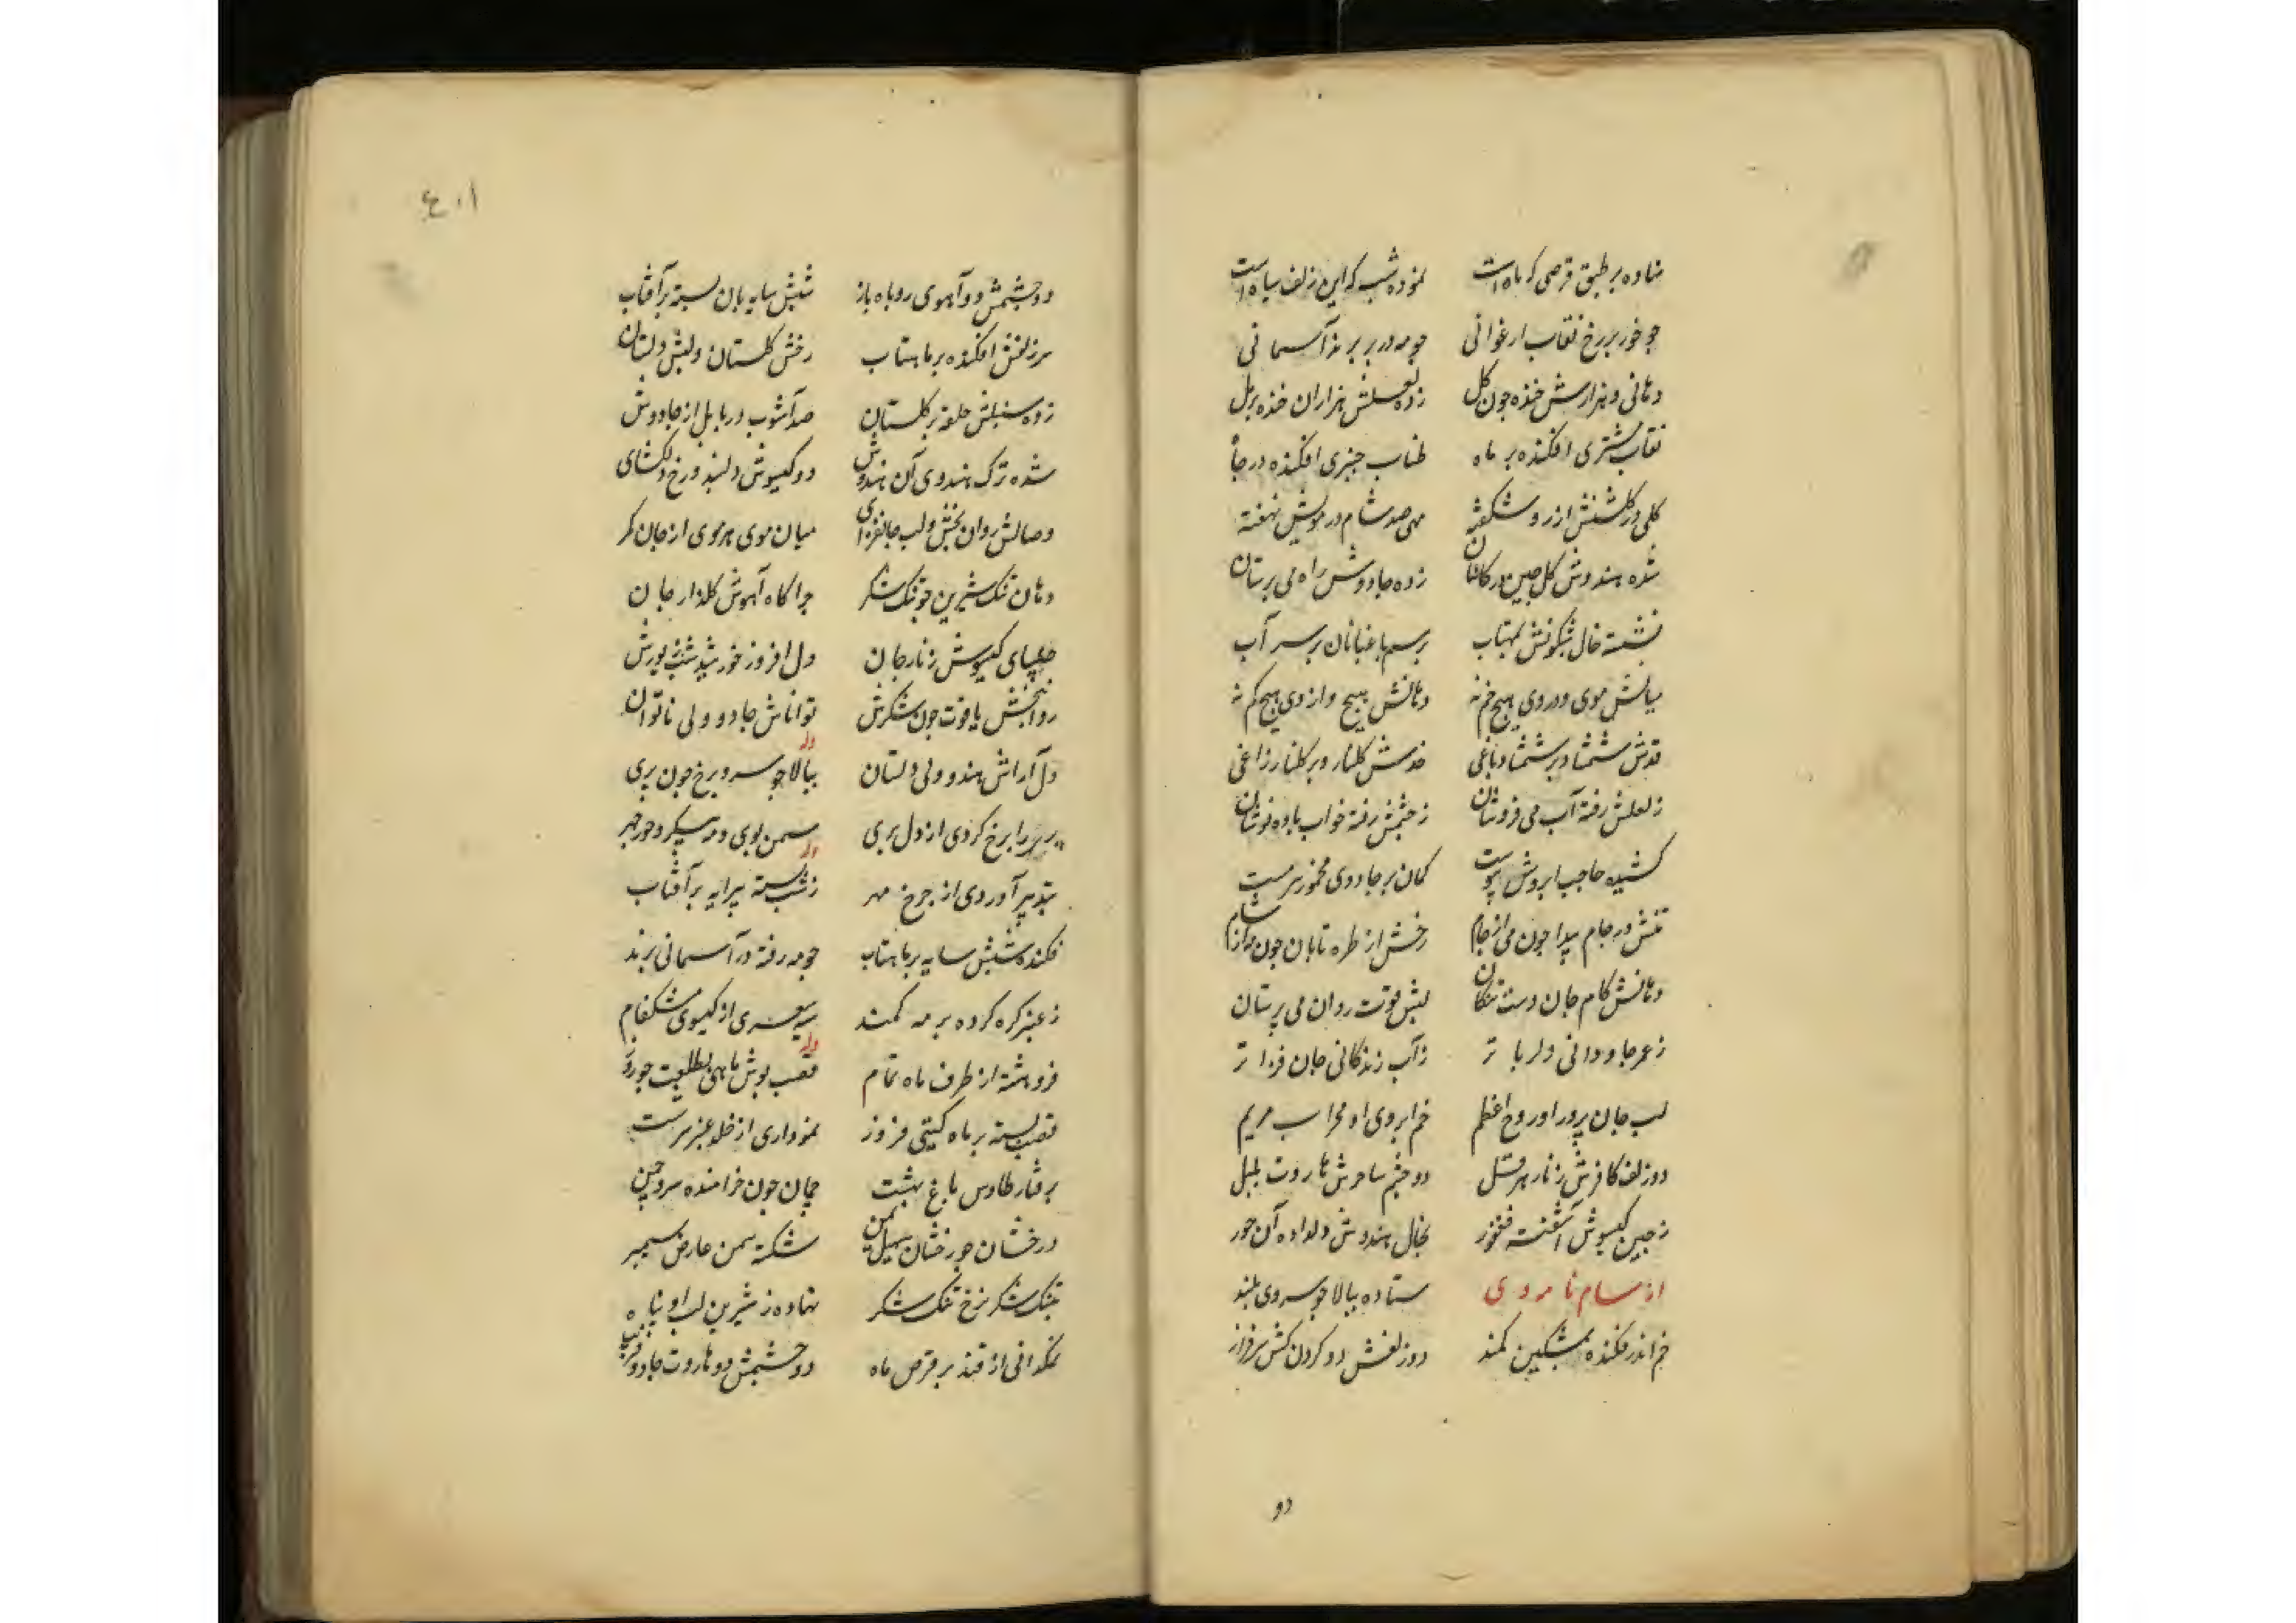 نهاده بر طبق قرصی که ماه است نموده شب که این زلف سیاه است
چو خور بر رخ نقاب ارغوانی چو مه در بر پرند آسمانی
دهانی و هزارش خنده چون گل زده لعلش هزاران خنده بر مل
نقاب مشتری افکنده بر ماه طناب چنبری افکنده در چاه
گلی در گلشنش از رو شکفته مهی صد شام در مویش نهفته
شده هندوش گل چین در گلستان زده جادوش راه می پرستان
نشسته خال شبگونش بمهتاب برسم باغبانان بر سر آب
میانش موی و در وی هیچ خم نه دهانش هیچ و از وی هیچ کم نه
قدش شمشاد و بر شمشاد باغی خدش گلنار و بر گلنار زاغی
ز لعلش رفته آب می فروشان ز چشمش رفته خواب باده نوشان
کشیده حاجب ابروش پیوست کمان بر جادوی مخمور سرمست
تنش در جام پیدا چون می از جام رخش از طره تابان چون مه از شام
دهانش کام جان دست تنگان لبش قوت روان می پرستان
ز عمر جاودانی دلربا تر ز آب زندگانی جان فزا تر
لب جان پرور او روح اعظم خم ابروی او محراب مریم
دو زلف کافرش زنار هر دل دو چشم ساحرش هاروت بابل
ز چین گیسوش آشفته فغفور بخال هندوش دلداده آن حور
از سام نامه وی ستاده ببالا چو سروی بلند
خم اندر فکنده بمشکین کمند دو زلفش دو گردن کش سرفراز
دو
۴۰۱
دو چشمش دو آهوی روباه باز شبش سایه بان بسته بر آفتاب
سر زلفش افکنده بر ماهتاب رخش گلستان و لبش دلستان
زده سنبلش حلقه بر گلستان صد آشوب در بابل از جادوش
شده ترک هندوی آن هندوش دو گیسوش دلبند و رخ دلگشای
وصالش روان بخش و لب جانفزای میان موی هر موی از جان کمر
دهان تنگ شیرین چو تنگ شکر چراگاه آهوش گلزار جان
چلیپای گیسوش زنار جان دل افروز خورشید شب زیورش
روانبخش یاقوت چون شکرش تواناش جادو ولی ناتوان
دل آراش هندو ولی دلستان وله ببالا چو سرو و برخ چون پری
پری را برخ کردی از دل بری سمن بوی و مه پیکر و حور چهر
بتدبیر آوردی از چرخ مهر وله ز شب بسته پیرایه بر آفتاب
فکنده شبش سایه بر ماهتاب چو مه رفته در آسمانی پرند
ز عنبر گره کرده بر مه کمند سمن از گیسوی مشکفام
فروهشته از طرف ماه تمام وله قصب پوش ماهی بطلعت چو روز
قصب بسته بر ماه گیتی فروز نموداری از خلد عنبر سرشت
برفتار طاوس باغ بهشت چمان چون خرامنده سرو چمن
درخشان چو رخشان سهیل یمن شکسته سمن عارض سیمبر
بتنگ شکر نرخ تنگ شکر نهاده ز شیرین لب او پناه
نمکدانی از قند بر قرص ماه دو چشمش دو هاروت جادو فریب